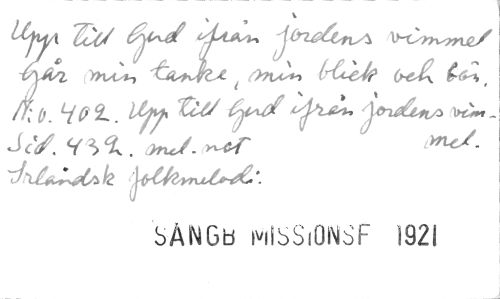 Upp till Gud ifrån jordens vimmel
Går min tanke, min blick och bön.
N:o. 402. Upp till Gud ifrån jordens vim-
mel.
Sid. 432. mel. not
Irländsk folkmelodi.
SÅNGB MISSIONSF 1921